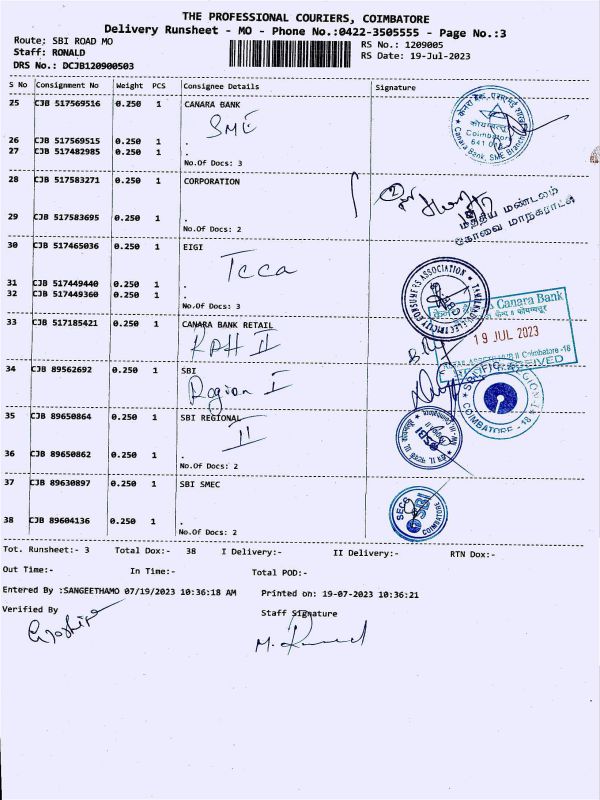 THE PROFESSIONAL COURIERS, COIMBATORE
Delivery Runsheet - MO - Phone No.:0422-3505555 - Page No.:3
Route; SBI ROAD MO
RS No.: 1209005
Staff: RONALD
RS Date: 19-Jul-2023
DRS No.: DCJB120900503
S No Consignment No Weight PCS Consignee Details Signature
25 CJB 517569516 0.250 1 CANARA BANK
SME
Coimbatore
641 018
Canara Bank, SME Branch
26 CJB 517569515 0.250 1 .
27 CJB 517482985 0.250 1 .
No.Of Docs: 3
28 CJB 517583271 0.250 1 CORPORATION
மத்திய மண்டலம்
கோவை மாநகராட்சி
29 CJB 517583695 0.250 1 .
No.Of Docs: 2
30 CJB 517465036 0.250 1 EIGI
Tcca
31 CJB 517449440 0.250 1 .
32 CJB 517449360 0.250 1 .
No.Of Docs: 3
Canara Bank
33 CJB 517185421 0.250 1 CANARA BANK RETAIL
RAH II
19 JUL 2023
Coimbatore -18
RECEIVED
34 CJB 89562692 0.250 1 SBI
Region I
COIMBATORE - 18
35 CJB 89650864 0.250 1 SBI REGIONAL
II
36 CJB 89650862 0.250 1 .
No.Of Docs: 2
37 CJB 89630897 0.250 1 SBI SMEC
SBI
COIMBATORE
38 CJB 89604136 0.250 1 .
No.Of Docs: 2
Tot. Runsheet:- 3 Total Dox:- 38 I Delivery:- II Delivery:- RTN Dox:-
Out Time:- In Time:- Total POD:-
Entered By :SANGEETHAMO 07/19/2023 10:36:18 AM Printed on: 19-07-2023 10:36:21
Verified By Staff Signature